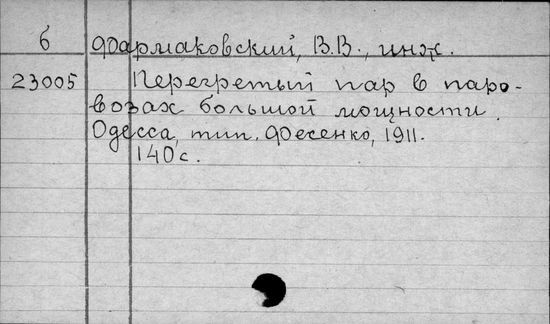 б Фармаковский, В.В., инж.
23005 Перегретый пар в паро-
возах большой мощности.
Одесса, тип. Фесенко, 1911.
140 с.